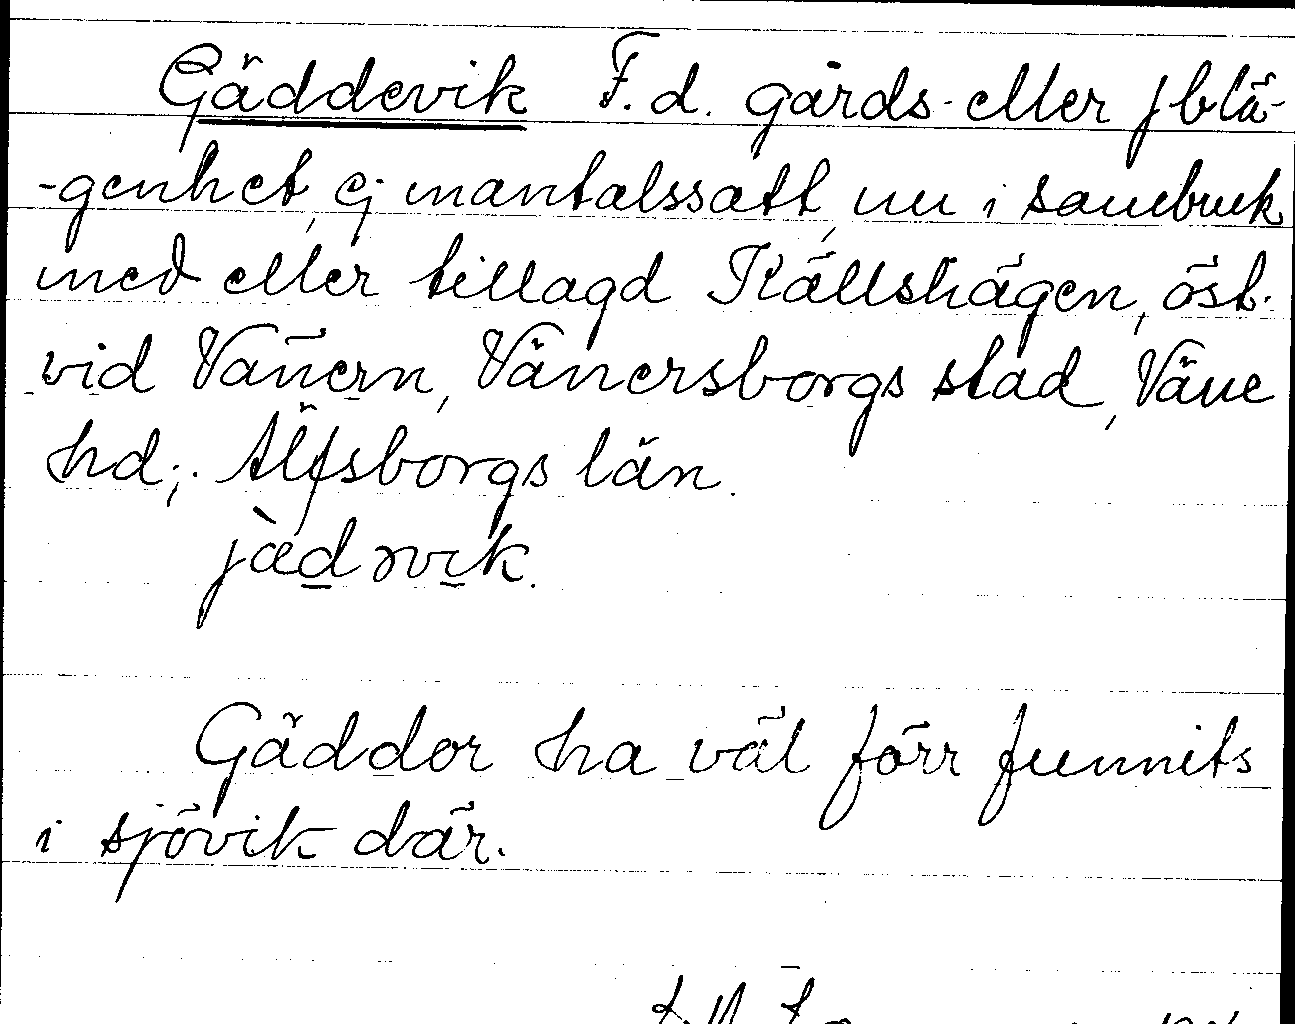 Gäddevik F.d. gårds- eller jblä-
-genhet, ej mantalssatt, nu i sambruk
med eller tillagd Källshagen, öst.
vid Vänern, Vänersborgs stad, Väne
hd; Älfsborgs län.
jàdəvik.
Gäddor ha väl förr funnits
i sjövik där.